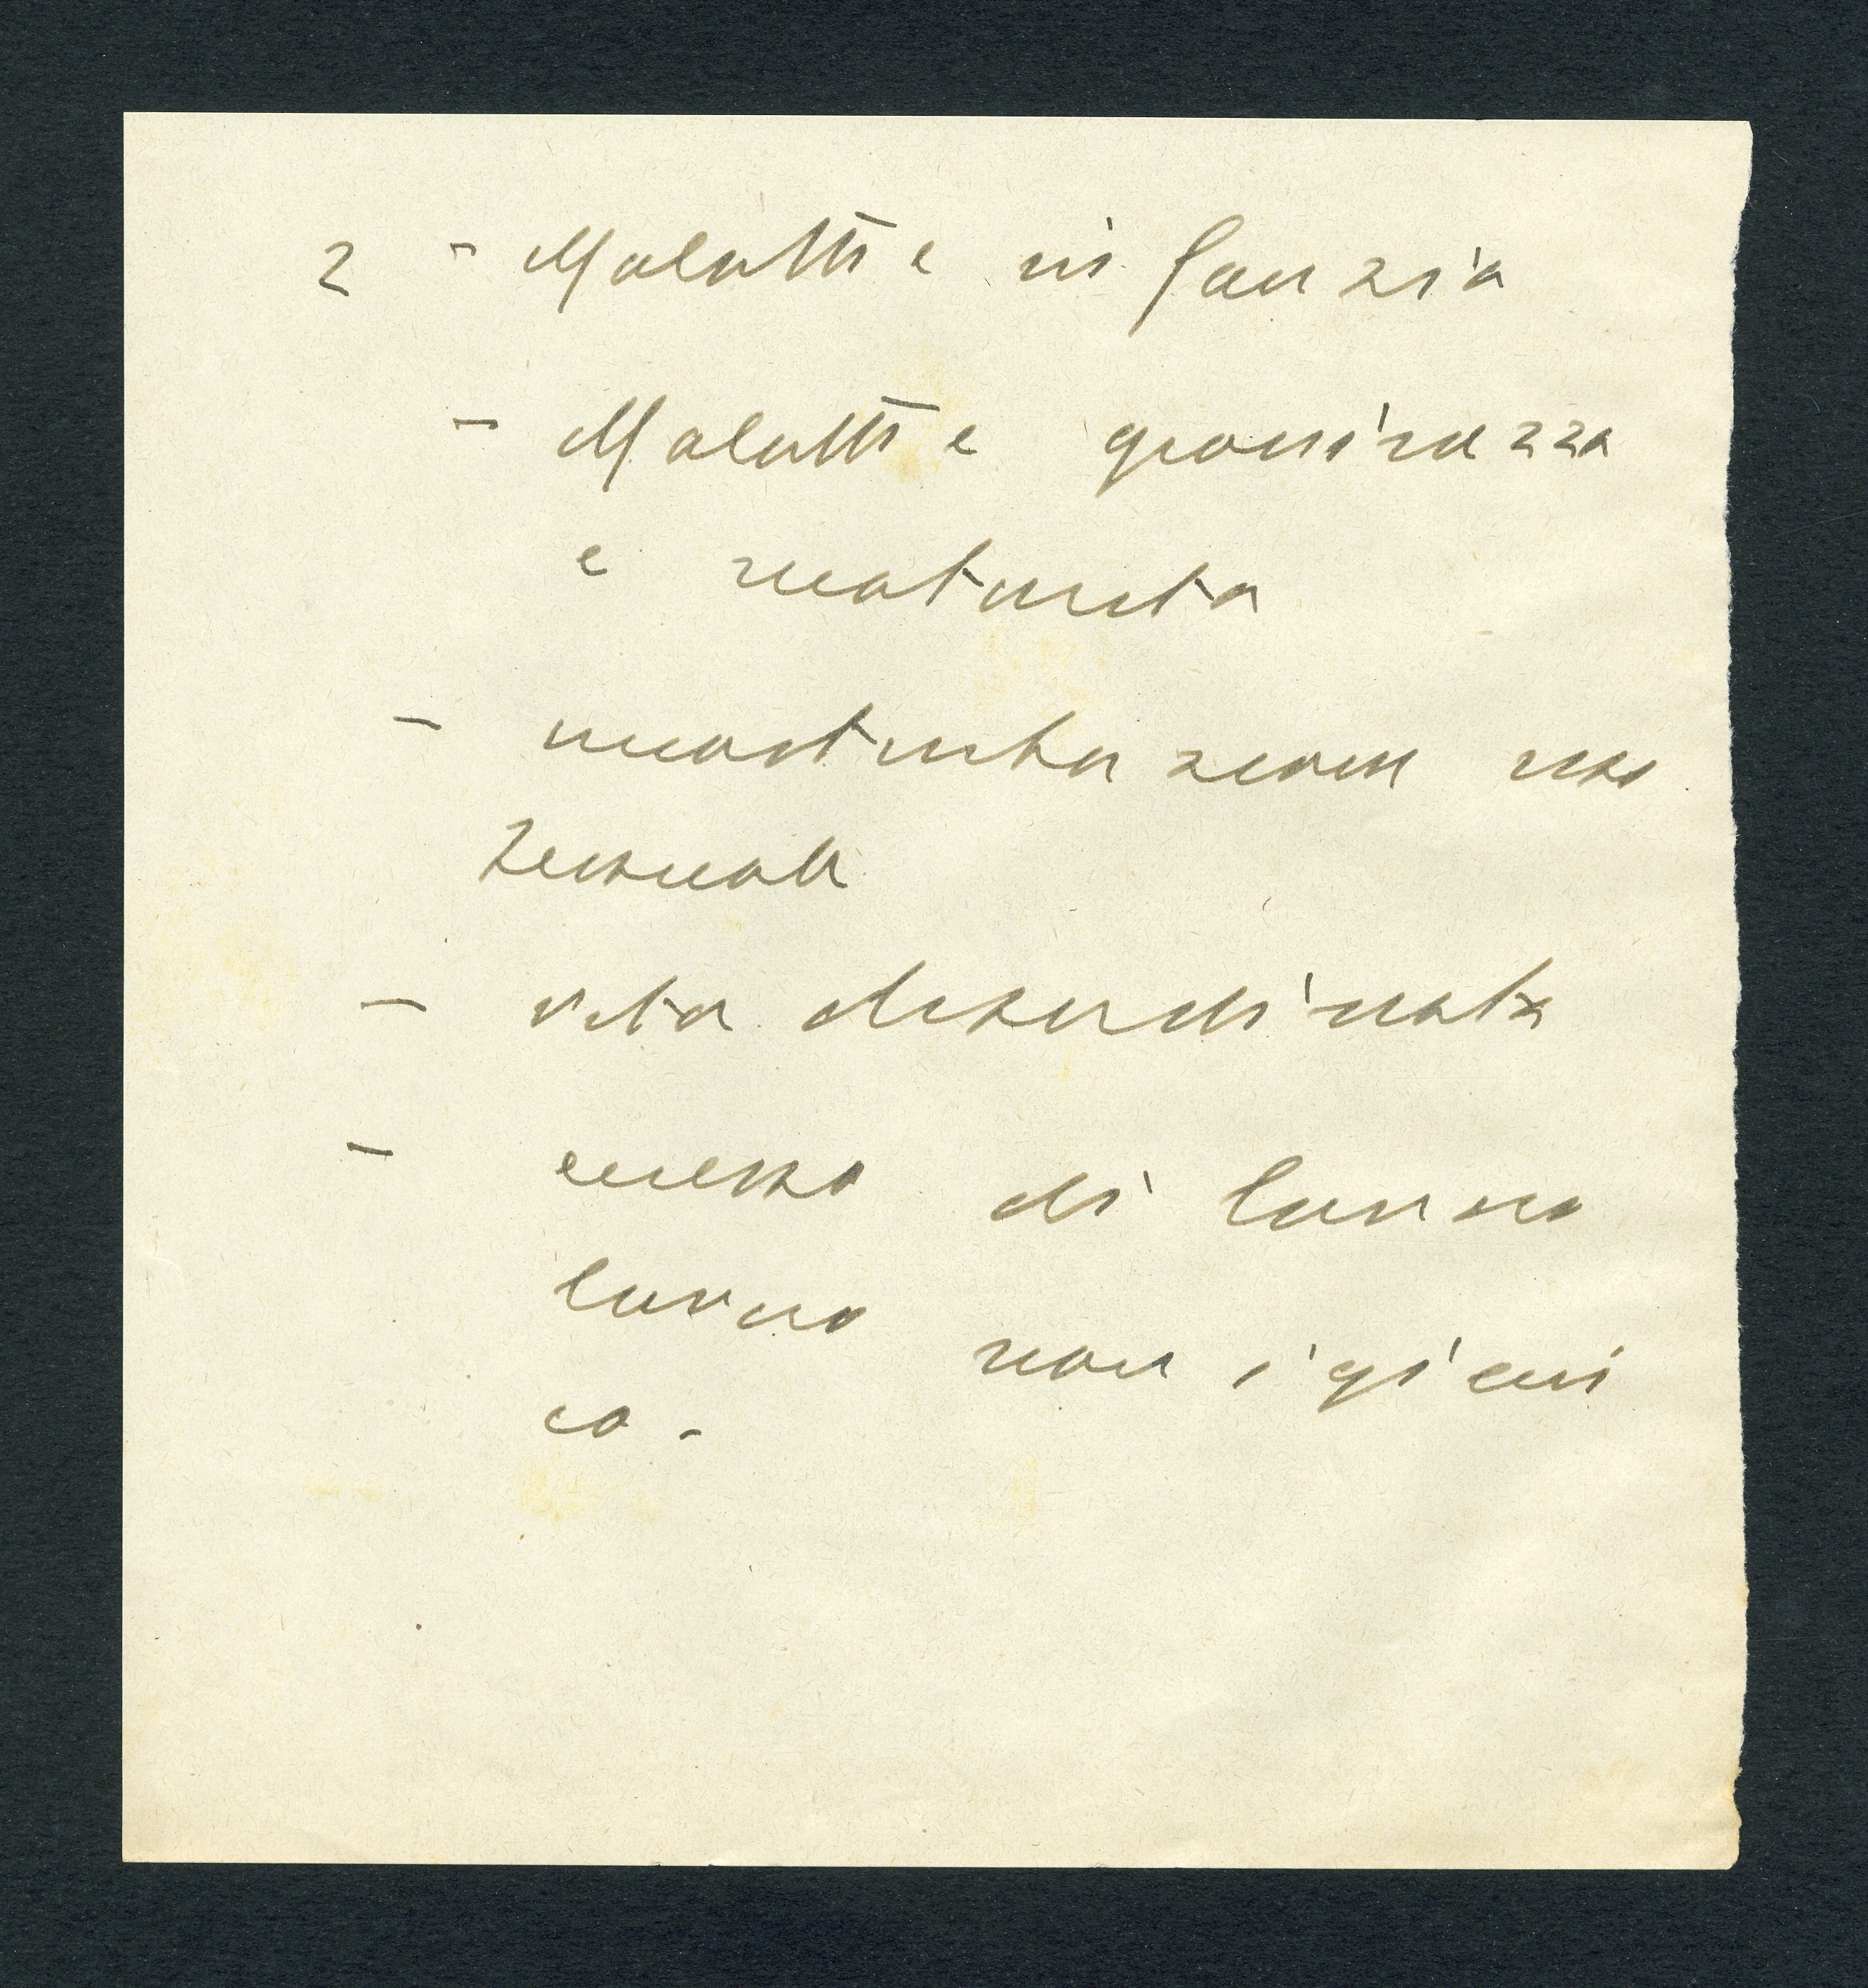 2 - Malattie infanzia
- Malattie giovinezza
e maturita
- masturbazioni
sessuali
- vita disordinata
- eccesso di lavoro
lavoro non igieni
co.